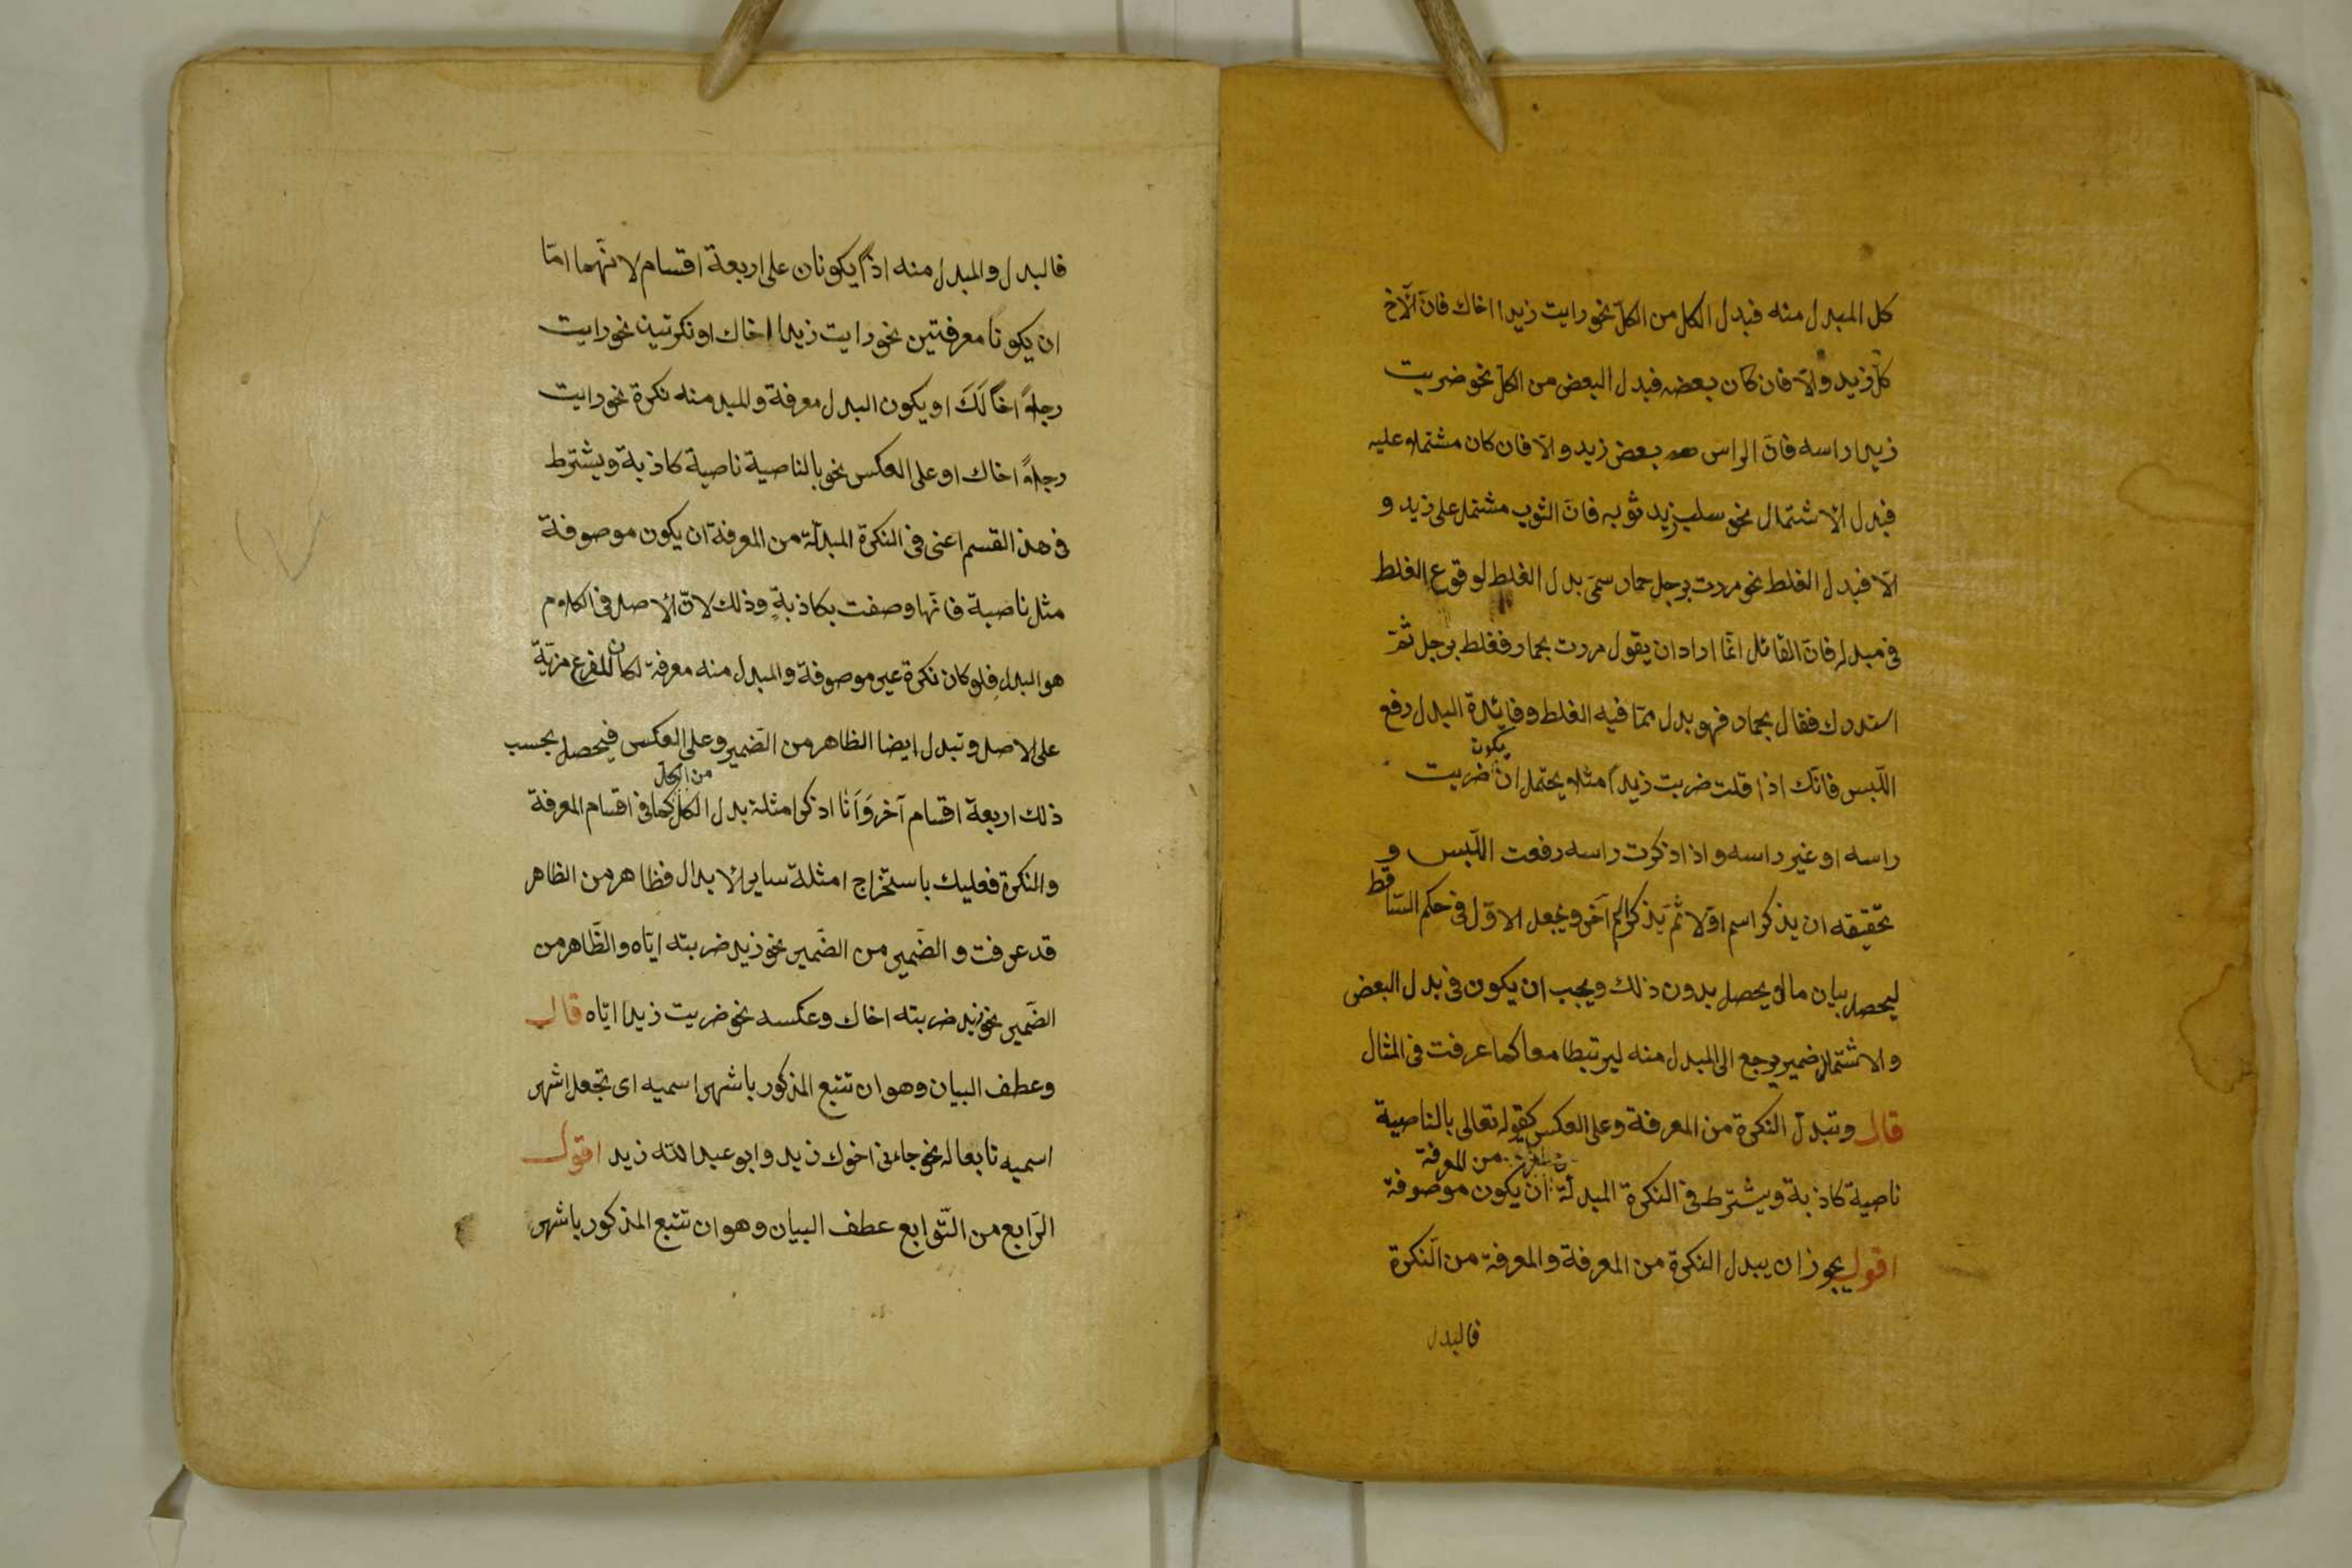 كل المبدل منه فبدل الكل من الكلّ نحو رايت زيدا اخاك فانّ الاخ
كلّ زيد والّا فان كان بعضه فبدل البعض من الكلّ نحو ضربت
زيدا راسه فانّ الراس هو بعض زيد والّا فان كان مشتملا عليه
فبدل الاشتمال نحو سلب زيد ثوبه فانّ الثوب مشتمل على زيد و
الّا فبدل الغلط نحو مررت برجل حمار سمّى بدل الغلط لوقوع الغلط
فى مبدله فانّ القائل انّما اراد ان يقول مررت بحمار فغلط برجل ثمّ
استدرك فقال بحمار فهو بدل ممّا فيه الغلط وفايدة البدل رفع
يكون
اللّبس فانّك اذا قلت ضربت زيداً مثلا يحتمل ان ضربت
راسه او غير راسه واذا ذكرت راسه رفعت اللّبس و
تحقيقه ان يذكر اسم اوّلا ثمّ يذكر اسم آخر ويجعل الاوّل فى حكم السّاقط
ليحصل بيان ما لو يحصل بدون ذلك ويجب ان يكون فى بدل البعض
والاشتمال ضمير يرجع الى المبدل منه ليرتبطا معا كما عرفت فى المثال
قال وتبدل النكرة من المعرفة وعلى العكس كقوله تعالى بالناصية
من المعرفة
ناصية كاذبة ويشترط فى النكرة المبدلة ان يكون موصوفة
اقول يجوز ان يبدل النكرة من المعرفة والمعرفة من النكرة
فالبدل
فالبدل والمبدل منه اذاً يكونان على اربعة اقسام لانّهما امّا
ان يكونا معرفتين نحو رايت زيدا اخاك او نكرتين نحو رايت
رجلاً اخاً لَكَ او يكون البدل معرفة والمبد منه نكرة نحو رايت
رجلاً اخاك او على العكس نحو بالناصية ناصية كاذبة ويشترط
فى هذ القسم اعنى فى النكرة المبدلة من المعرفة ان يكون موصوفة
مثل ناصية فانّها وصفت بكاذبةٍ وذلك لانّ الاصل فى الكلام
هو البدل فلو كان نكرة غير موصوفة والمبدل منه معرفة لكان للفرع مزيّة
على الاصل وتبدل ايضا الظاهر من الضّمير وعلى العكس فيحصل بحسب
من الكلّ
ذلك اربعة اقسام آخر وَاَنَا اذكر امثلة بدل الكل كما فى اقسام المعرفة
والنكرة فعليك باستخراج امثلة ساير الابدال فظاهر من الظاهر
قد عرفت و الضّمير من الضّمير نحو زيد ضربته ايّاه والظّاهر من
الضّمير نحو زيد ضربته اخاك وعكسه نحو ضربت زيدا ايّاه قال
وعطف البيان وهو ان تتبع المذكور باشهر اسميه اى تجعل اشهر
اسميه تابعا له نحو جاءنى اخوك زيد وابو عبد الله زيد اقول
الرّابع من التّوابع عطف البيان وهو ان تتبع المذكور باشهر